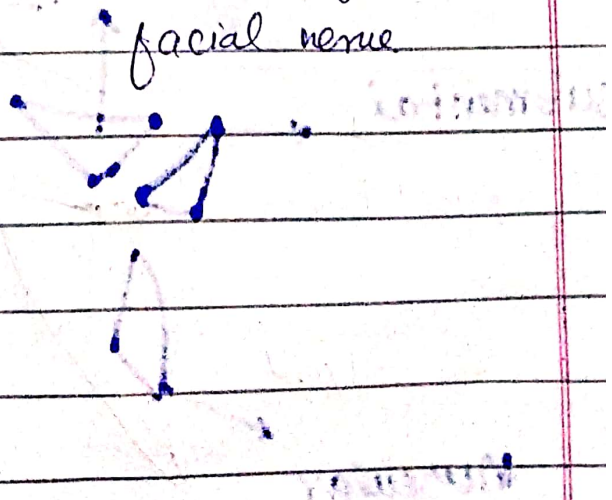 facial nerve